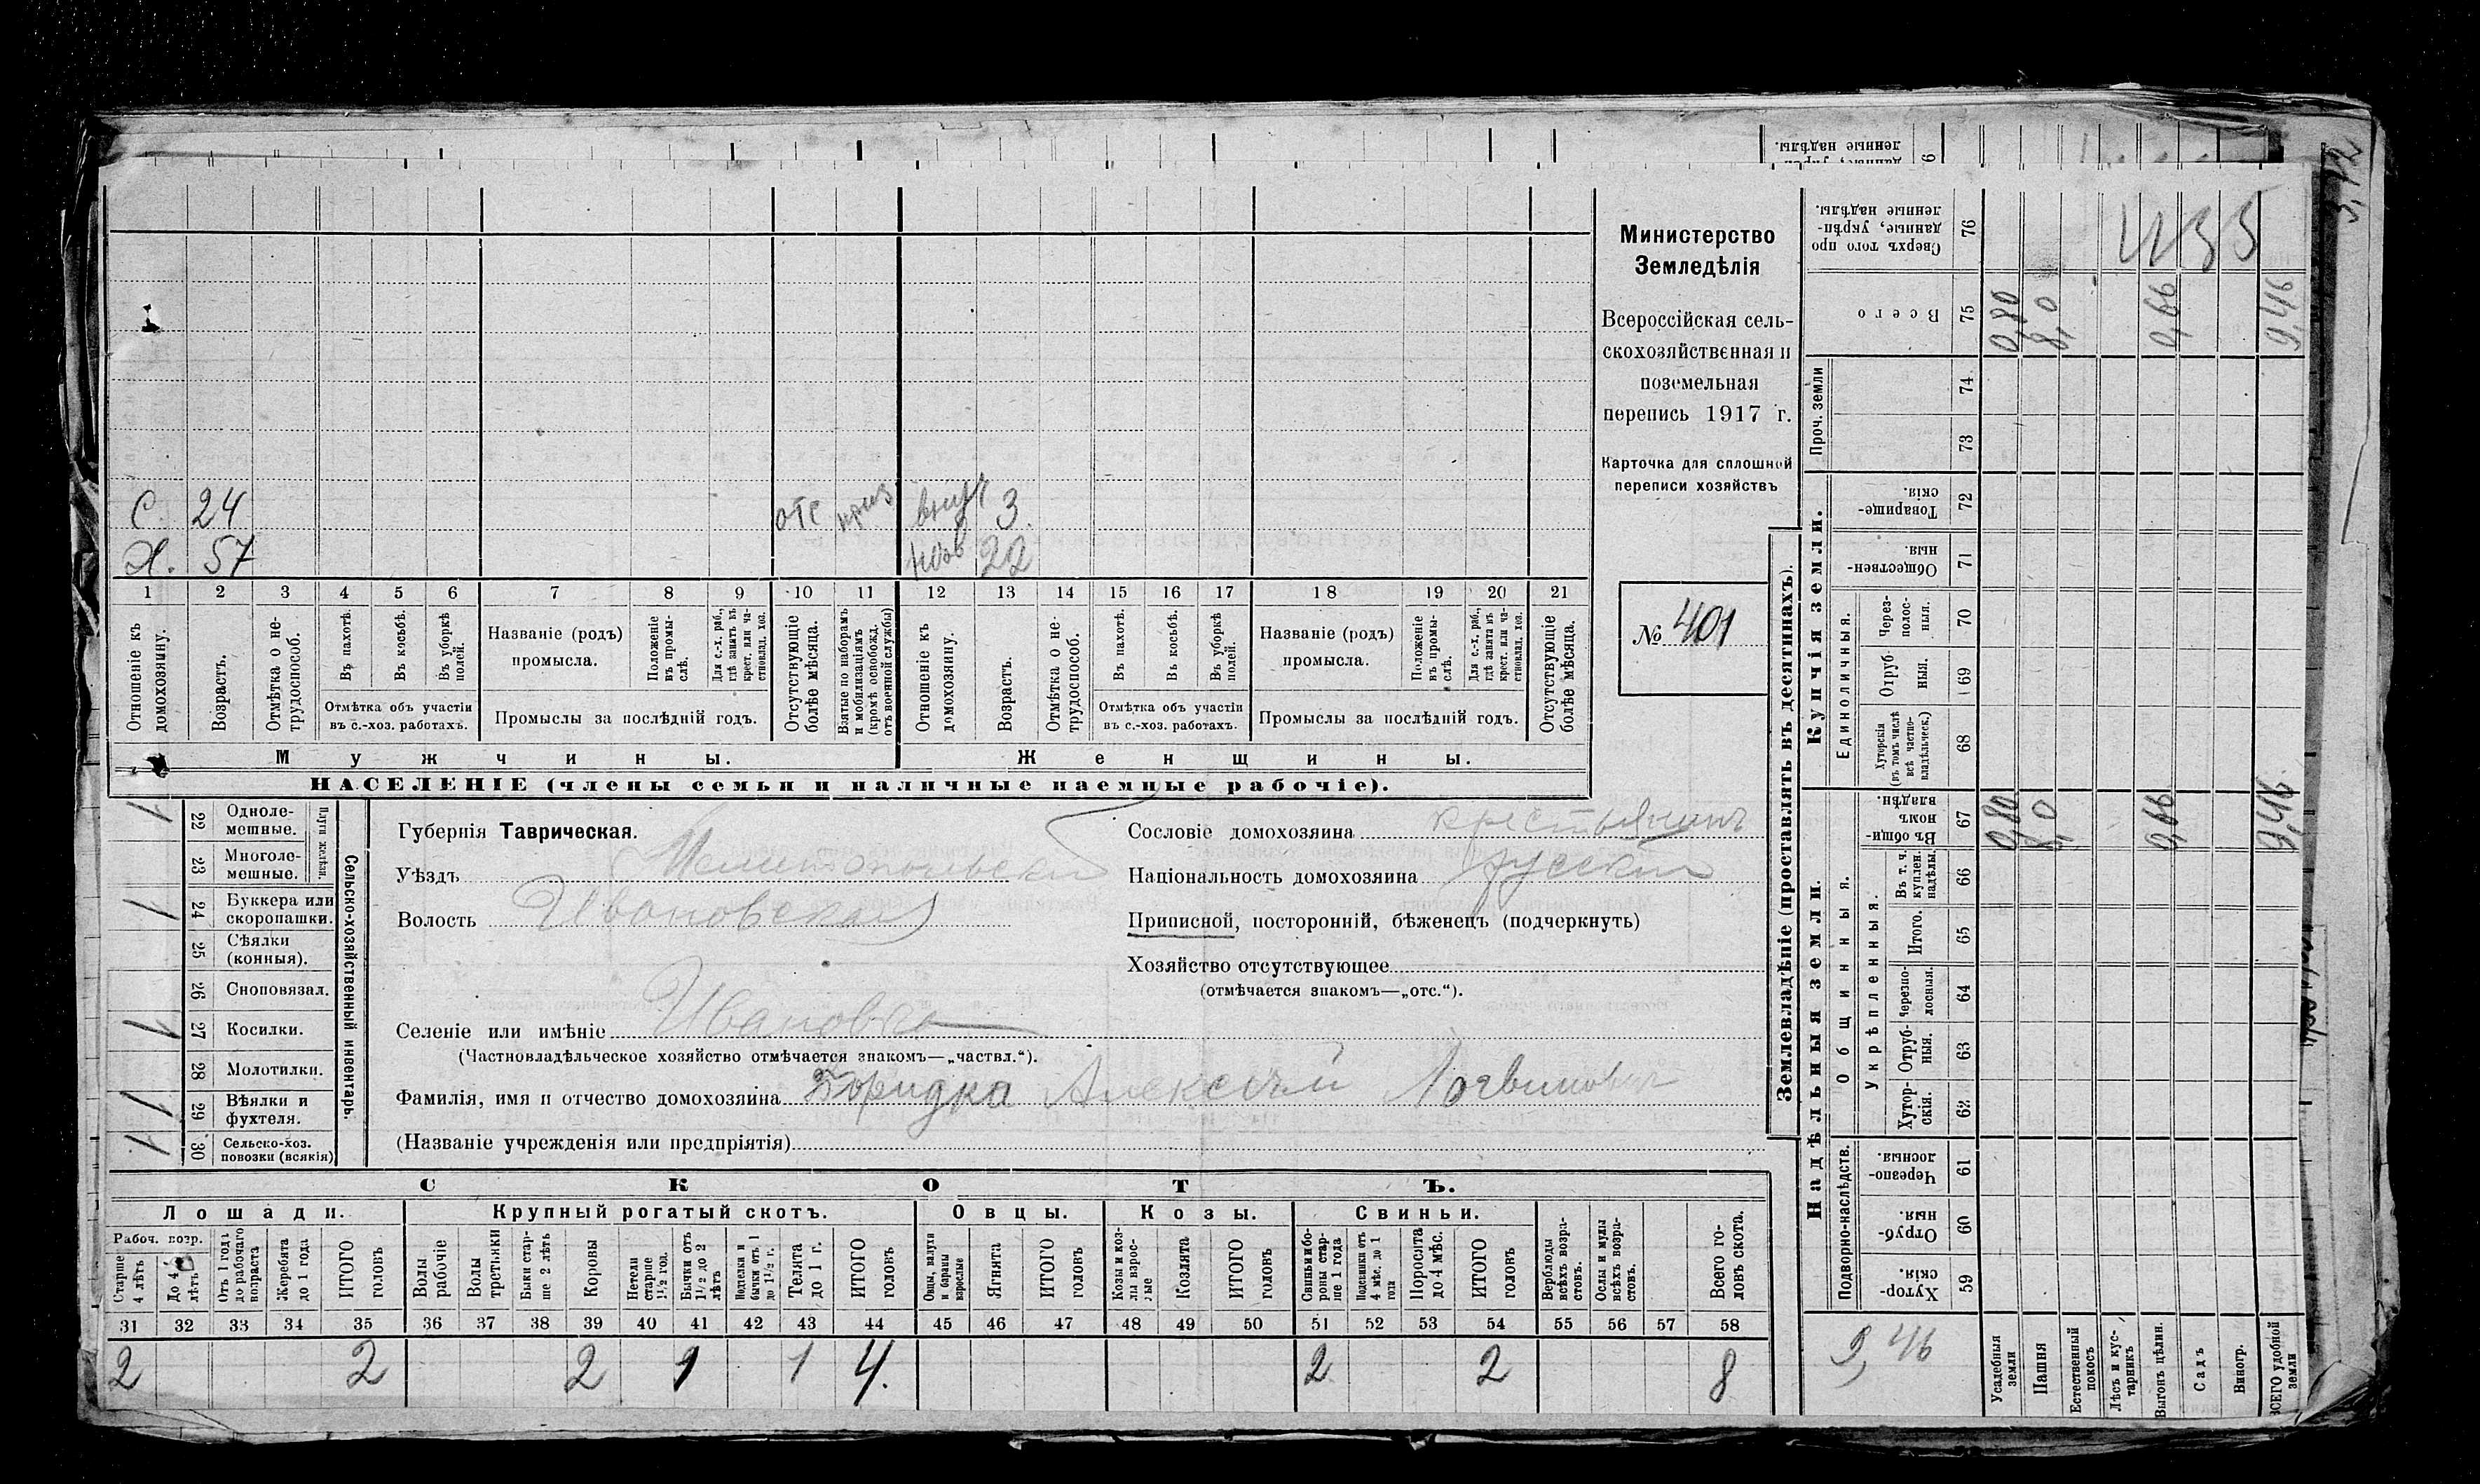 С. 24 отс приз внуч 3.
Х. 57 нов 22
1 2 3 4 5 6 7 8 9 10 11 12 13 14 15 16 17 18 19 20 21
Отношеніе къ домохозяину.
Возрастъ.
Отмѣтка о не-трудоспособ.
Въ пахотѣ.
Въ косьбѣ.
Въ уборкѣ полей.
Отмѣтка объ участіи
въ с.-хоз. работахъ.
Названіе (родъ)
промысла.
Положеніе въ промы-слѣ.
Для с.-х. раб., гдѣ занятъ въ крест. или ча-стновлад. хоз.
Промыслы за послѣдній годъ.
Отсутствующіе болѣе мѣсяца.
Взятые по наборамъ и мобилизаціямъ (кромѣ освобожд. отъ военной службы)
Отношеніе къ домохозяину.
Возрастъ.
Отмѣтка о не-трудоспособ.
Въ пахотѣ.
Въ косьбѣ.
Въ уборкѣ полей.
Отмѣтка объ участіи
въ с.-хоз. работахъ.
Названіе (родъ)
промысла.
Положеніе въ промы-слѣ.
Для с.-х. раб., гдѣ занята въ крест. или ча-стновлад. хоз.
Промыслы за послѣдній годъ.
Отсутствующіе болѣе мѣсяца.
Мужчины. Женщины.
НАСЕЛЕНІЕ (члены семьи и наличные наемные рабочіе).
Министерство
Земледѣлія
Всероссійская сель-
скохозяйственная и
поземельная
перепись 1917 г.
Карточка для сплошной
переписи хозяйствъ
№ 401
Сельско-хозяйственный инвентарь.
Плуги желѣзн.
1 22 Одноле-мешные.
23 Многоле-мешные.
1 24 Буккера или скоропашки.
25 Сѣялки (конныя).
26 Сноповязал.
1 27 Косилки.
28 Молотилки.
1 29 Вѣялки и фухтеля.
1 30 Сельско-хоз. повозки (всякія)
Губернія Таврическая.
Уѣздъ Мелитопольскій
Волость Ивановская
Селеніе или имѣніе Ивановка
(Частновладѣльческое хозяйство отмѣчается знакомъ—„частвл.“).
Сословіе домохозяина крестьянинъ
Національность домохозяина русскій
Приписной, посторонній, бѣженецъ (подчеркнуть)
Хозяйство отсутствующее
(отмѣчается знакомъ—„отс.“).
Фамилія, имя и отчество домохозяина Алексѣй Логвиновъ
(Названіе учрежденія или предпріятія)
СКОТЪ.
Лошади. Крупный рогатый скотъ. Овцы. Козы. Свиньи.
Рабоч. возр.
Старше 4 лѣтъ
До 4 лѣтъ
Отъ 1 года до рабочаго возраста
Жеребята до 1 года
ИТОГО головъ
Волы рабочіе
Волы третьяки
Быки стар-ше 2 лѣтъ
Коровы
Нетели старше 1½ год.
Бычки отъ 1½ до 2 лѣтъ
Подтелки и бычки отъ 1 до 1½ г.
Телята до 1 г.
ИТОГО головъ
Овцы, валухи и бараны взрослые
Ягнята
ИТОГО головъ
Козы и коз-лы взрос-лые
Козлята
ИТОГО головъ
Свиньи и бо-ровы стар-ше 1 года
Подсвинки отъ 4 мѣс. до 1 года
Поросята до 4 мѣс.
ИТОГО головъ
Верблюды всѣхъ возра-стовъ.
Ослы и мулы всѣхъ возра-стовъ.
Всего го-ловъ скота.
31 32 33 34 35 36 37 38 39 40 41 42 43 44 45 46 47 48 49 50 51 52 53 54 55 56 57 58
2 2 2 1 1 4. 2 2 8
Землевладѣніе (проставлять въ десятинахъ).
Купчія земли.
Надѣльныя земли.
Сверхъ того про-данные, укрѣп-ленные надѣлы. 76
Всего 75 0,80 8,0 0,66 9,46
Проч. земли 74 73
Товарище-скія. 72
Обществен-ныя. 71
Единоличныя.
Черезполос-ныя. 70
Отруб-ныя. 69
Хуторскія (въ томъ числѣ всѣ частно-владѣльческ.) 68
Въ общин-номъ владѣн. 67 0,80 8,0 0,66 9,46
Общинныя.
Укрѣпленныя.
Въ т. ч. куплен. надѣлы. 66
Итого. 65
Черезпо-лосныя. 64
Отруб-ныя. 63
Хутор-скія. 62
Подворно-наслѣдств.
Черезпо-лосныя. 61
Отруб-ныя. 60
Хутор-скія. 59
9,46
Усадебныя земли
Пашня
Естественный покосъ
Лѣсъ и кус-тарникъ
Выгонъ цѣлин.
Садъ
Виногр.
ВСЕГО удобной земли